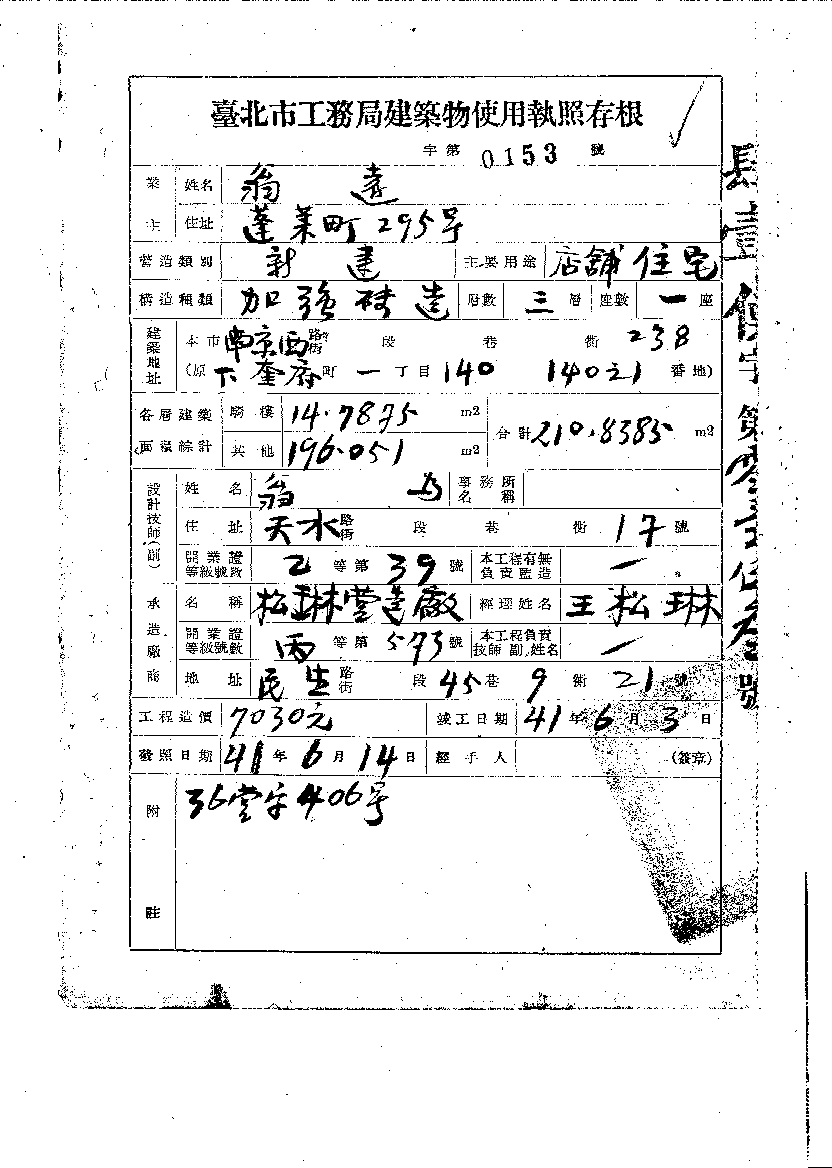 臺北市工務局建築物使用執照存根
字第 0153 號
業主 姓名 翁 遠
住址 蓬萊町295号
營造類別 新建 主要用途 店舖住宅
構造種類 加強磚造 層數 三層 座數 一座
建築地址 本市 南京西路街 段 巷 衖 238
(原 下奎府町 一丁目 140 140之1 番地)
各層建築面積綜計 騎樓 14.7875 m2 合計 210.8385 m2
其他 196.051 m2
設計技師(副) 姓名 翁 事務所名稱
住址 天水路街 段 巷 衖 17 號
開業證等級號數 乙等第 39 號 本工程有無負責監造 一
承造廠商 名稱 松琳營造廠 經理姓名 王松琳
開業證等級號數 丙等第 573 號 本工程負責技師副姓名 一
地址 民生路街 段 45巷 9衖 21號
工程造價 7030元 竣工日期 41年6月3日
發照日期 41年6月14日 經手人 (簽章)
附註 36營字406号
肆壹使字第零壹伍叁號